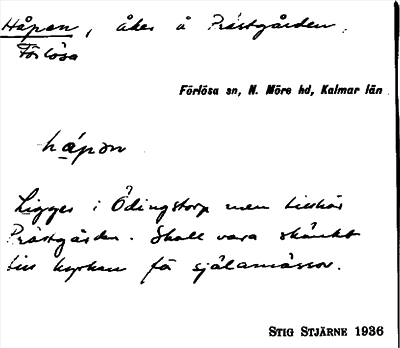 Håpen, åker å Prästgården.
Förlösa
Förlösa sn, N. Möre hd, Kalmar län
hápon
Ligges i Ödingstorp men tillhör
Prästgården. Skall vara skänkt
till kyrkan få själamässor.
STIG STJÄRNE 1936